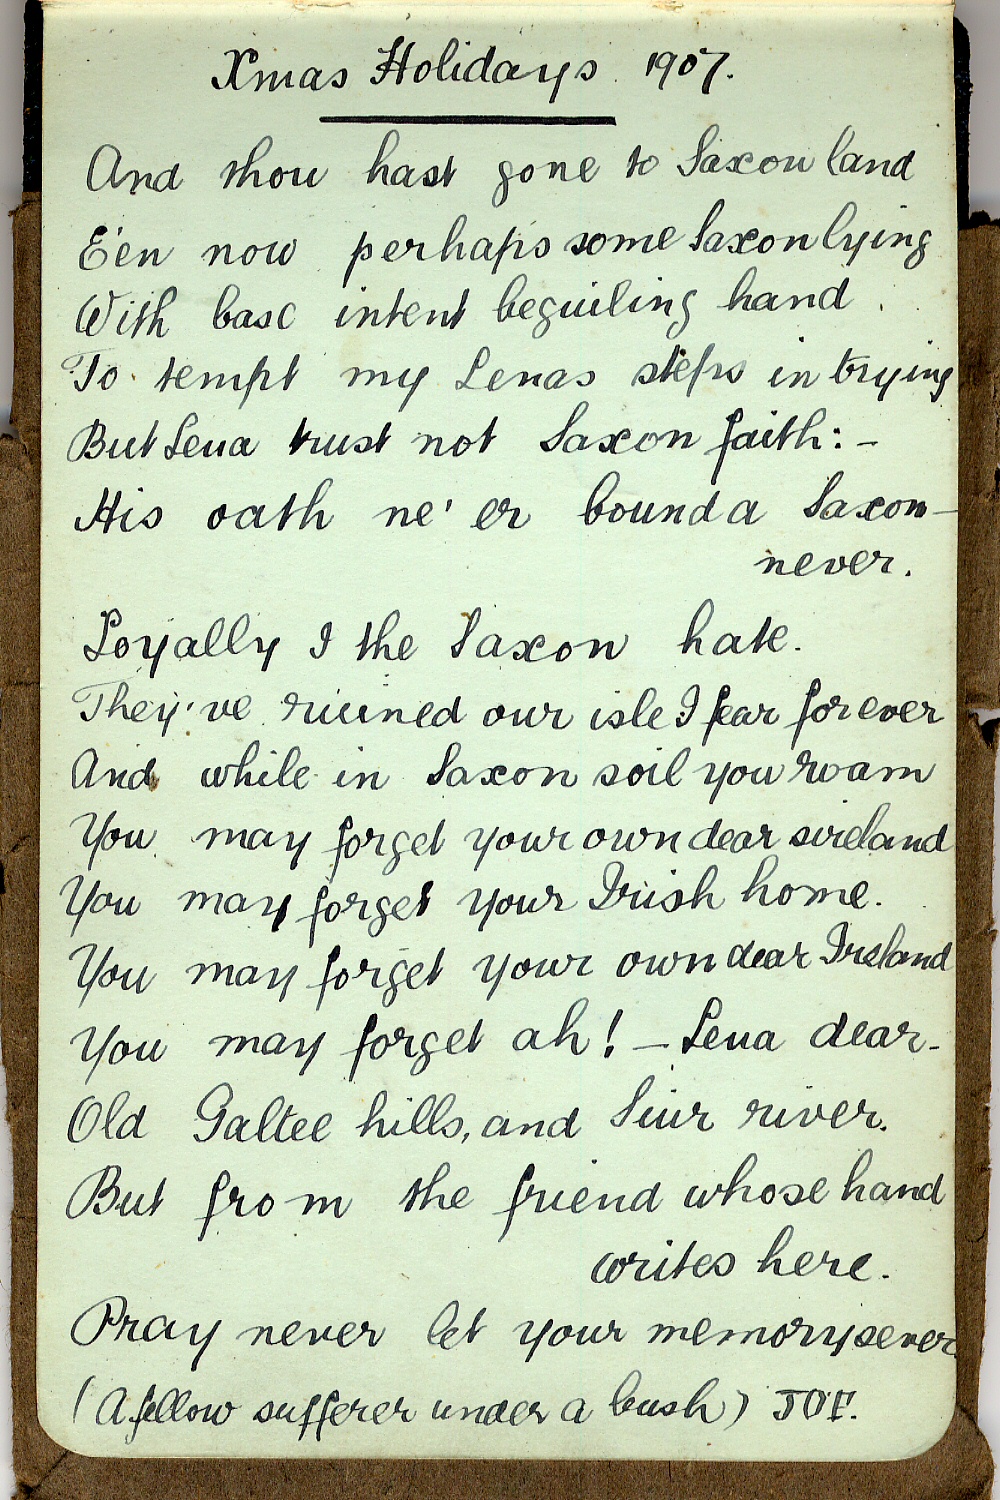 Xmas Holidays 1907.
And thou hast gone to Saxon land
E'en now perhaps some Saxon lying
With base intent beguiling hand
To tempt my Lenas steps in trying
But Lena trust not Saxon faith:-
His oath ne'er bound a Saxon-
never.
Loyally I the Saxon hate.
They've ruined our isle I fear forever
And while in Saxon soil you roam
You may forget your own dear sireland
You may forget your Irish home.
You may forget your own dear Ireland
You may forget ah! - Lena dear-
Old Galtee hills, and Suir river.
But from the friend whose hand
writes here.
Pray never let your memory sever
(A fellow sufferer under a bush)